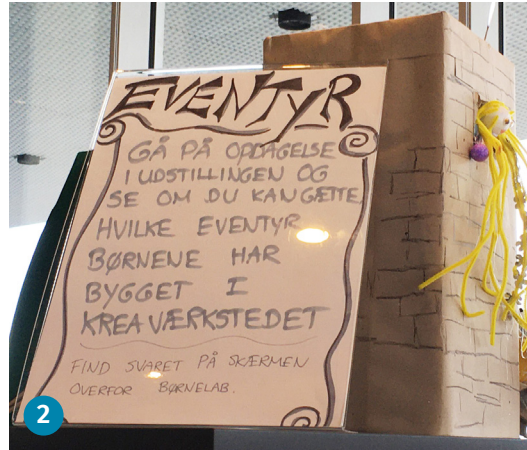 EVENTYR
GÅ PÅ OPDAGELSE
I UDSTILLINGEN OG
SE OM DU KAN GÆTTE
HVILKE EVENTYR
BØRNENE HAR
BYGGET I
KREAVÆRKSTEDET
FIND SVARET PÅ SKÆRMEN
OVERFOR BØRNELAB.
2